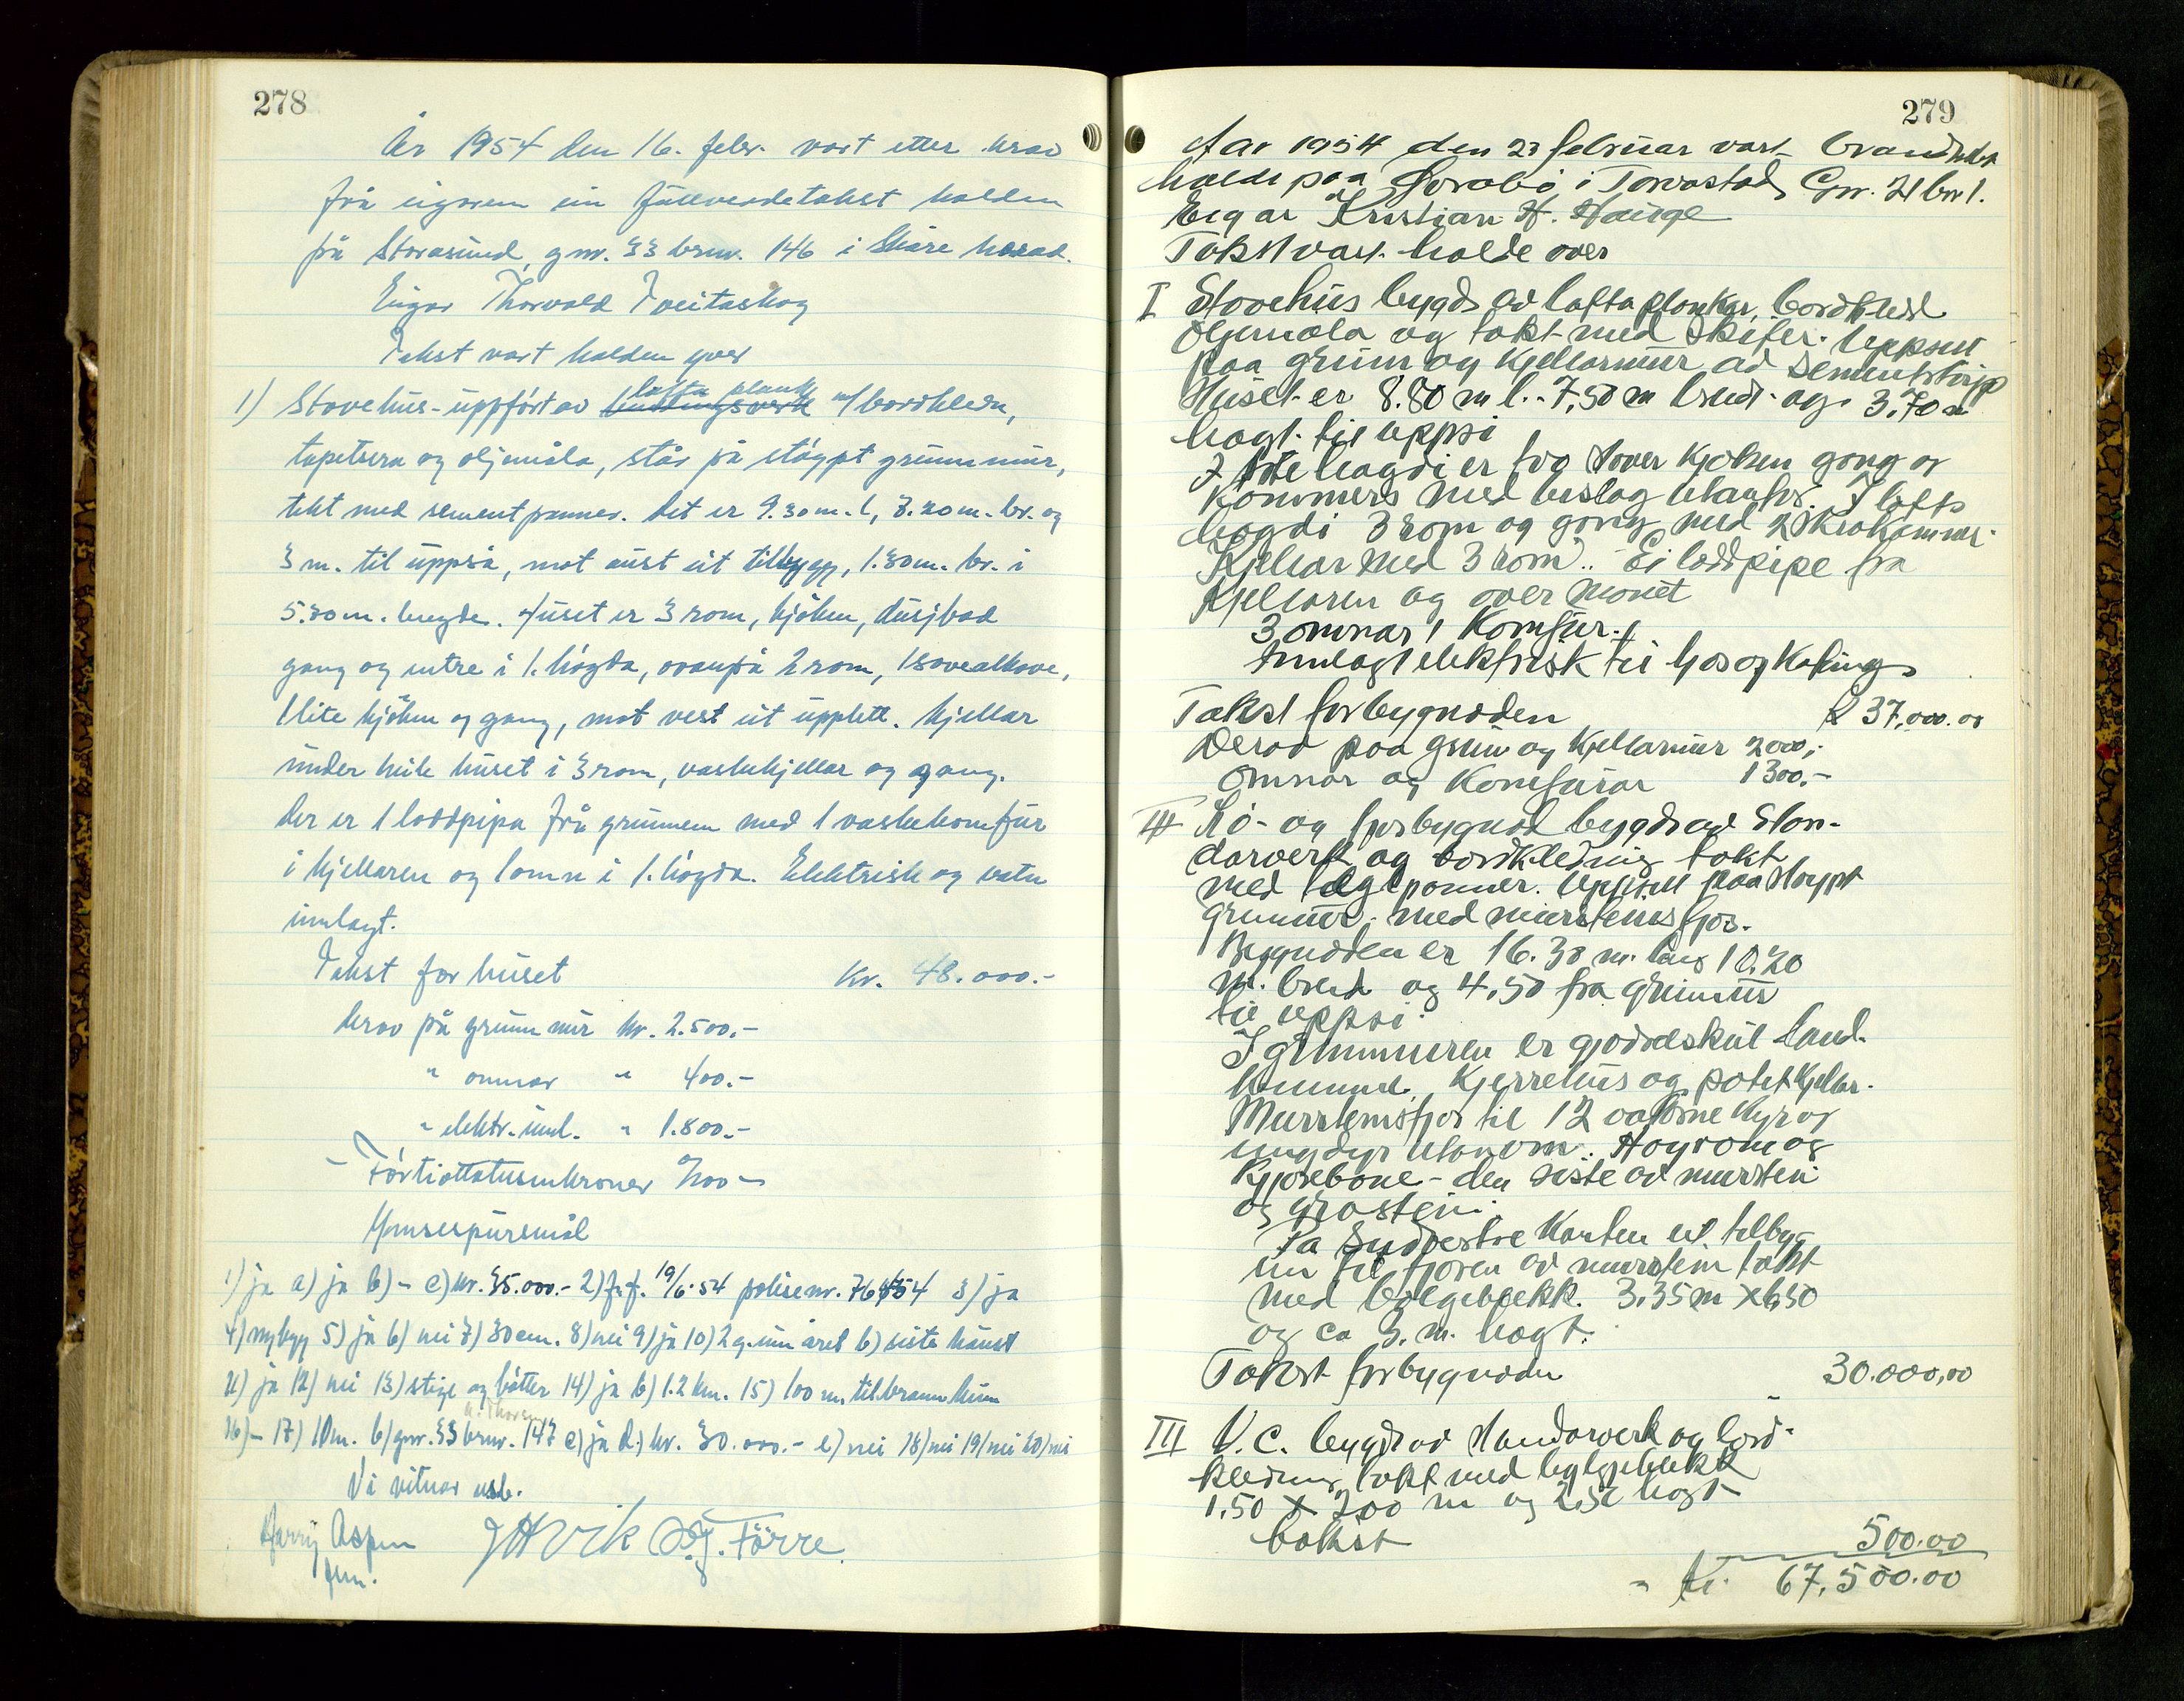 278
År 1954 den 16. febr. vart etter krav
frå eigaren ein fullverdetakst halden
på Storasund, gnr. 33 brnr. 146 i Skåre herad.
Eigar Thorvald Tveitaskog
Takst vart halden yver
1) Stovehus - uppført av lafta plank m/ bordkledn,
tapetsera og oljemåla, står på støypt grunnmur,
tekt med sementpanner. Det er 9.30 m. l, 7.20 m. br. og
3 m. til uppså, mot aust eit tilbygg, 1.30 m. br. i
5.30 m. lengde. Huset er 3 rom, kjøken, dusjbad
gang og entre i 1. høgda, ovanpå 2 rom, 1 sovealkove,
1 lite kjøken og gang, mot vest eit upplett. Kjellar
under heile huset i 3 rom, vaskekjellar og gang.
Der er 1 loddpipa frå grunnen med 1 vaskekomfur
i kjellaren og 1 omn i 1. høgda. Elektrisk og vatn
innlagt.
Takst for huset Kr. 48.000.-
Herav på grunnmur kr. 2.500.-
" omnar " 400.-
" elektr. innl. " 1.800.-
- Førtiottetusenkroner 00 -
Ymsespursmål
1) ja a) ja b) - c) kr. 35.000.- 2) J.f. 19/6-54 polisenr. 3) ja
4) nybygg 5) ja 6) nei 7) 30 cm. 8) nei 9) ja 10) 2 g. um året b) siste haust
11) ja 12) nei 13) stige og bøtter 14) ja b) 1.2 km. 15) 100 m, til brannkum
16) - 17) 10 m. b) gnr. 33 brnr. 147 c) ja d) kr. 30.000.- e) nei 18) nei 19) nei 20) nei
Vi vitnar usb.
Harry Aspen J H Vik O.J. Førre.
279
Aar 1954 den 23 februar vart brandtakst
halde paa Sørabø i Torvastad Gnr. 21 bnr 1.
Eigar Kristian H. Hauge
Takst vart halde over
I Stovehus bygd av lafta plankar, bordkledd
oljemåla og takt med skifer. Uppsett
paa grunn og kjellarmur ad sementstøyp
Huset er 8.80 m l. - 7,50 m breidt og 3,70 m
høgt til uppsi
I 1ste høgdi er tvo stover kjøken gang og
kommers med beslag utanfor. I lofts
høgdi 3 rom og gang med 2 skråkammer.
Kjellar med 3 rom.. Ei loddpipe fra
kjellaren og over mønet
3 omnar 1 Komfur.
Innlagt elektrisk til ljos og koking
Takst for bygnoden k 37,000.00
Derav paa grunn og kjellarmur 2000,-
omnar og komfurar 1300.-
II Lø- og fjosbygnod bygd av Stan-
darverk og bordkledning takt
med teglpanner. Uppsett paa støypt
grunnmur. med mursteins fjos.
Bygnoden er 16.30 m. lang 10.20
m. breid og 4,50 fra grunnmur
til uppsi.
I grunnmuren er gjødselskut land-
kummel. Kjerrehus og potetkjellar.
Mursteinsfjos til 12 vaksne kyr og
ungdyr utanom. Høyrom og
Kjørebone - den siste av murstein
og gråstein.
Pa Sydvestre Kanten eit tilbyg-
nn til fjosen av murstein takt
med bølgeblekk. 3.35 m x 6,50
og ca 3. m. høgt.
Takst for bygnoden 30.000,00
III V.C. bygd av standarverk og bord-
kledning takt med bylgjeblekk
1.50 x 200 m og 2,50 høgt
takst 500.00
" Kr. 67,500.00